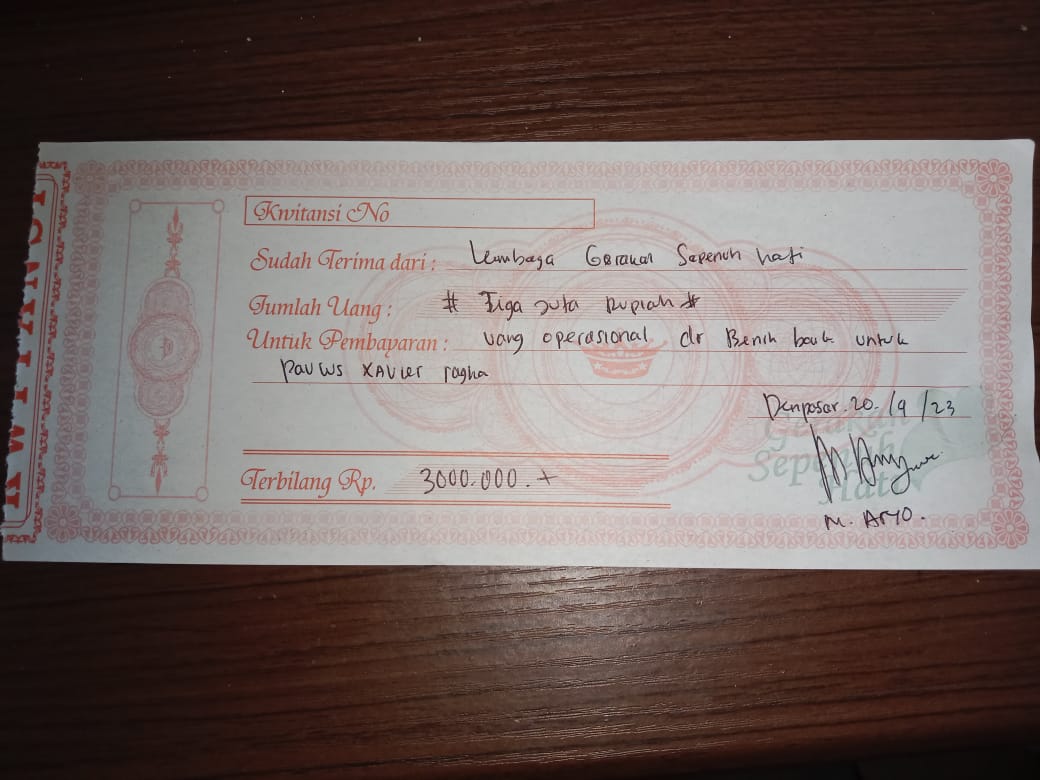 KWITANSI
Kwitansi No
Sudah Terima dari : Lembaga Gerakan Sepenuh hati
Jumlah Uang : # Tiga juta rupiah #
Untuk Pembayaran : uang operasional dr Benih baik untuk
Paulus XAVIer ragha
Denpasar. 20. /9 /23
Gerakan
Sepenuh
Hati
Terbilang Rp. 3000.000.+
M. ARYO.